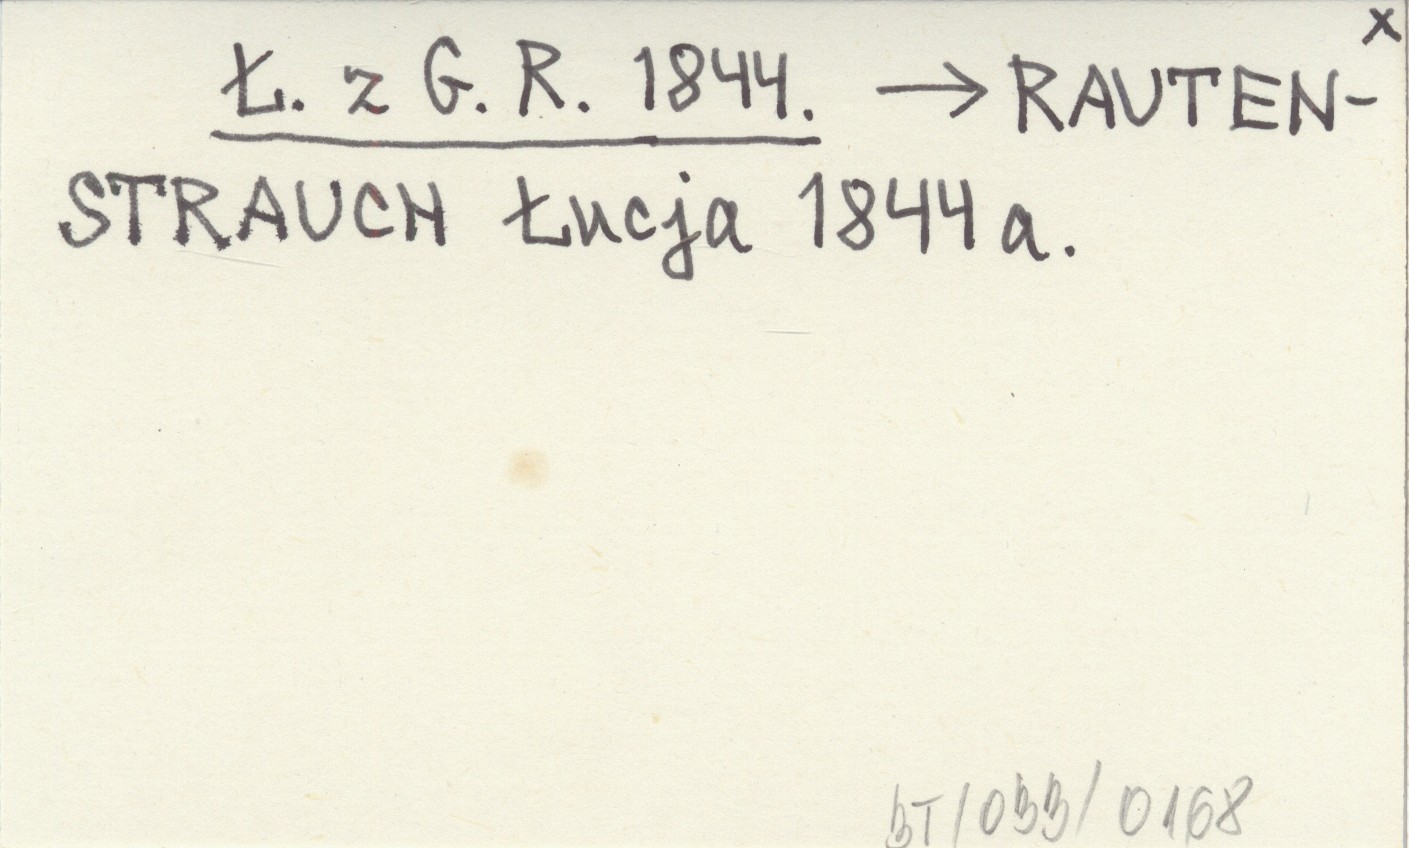 x
Ł. z G. R. 1844. → RAUTEN-
STRAUCH Łucja 1844 a.
BT/033/0168